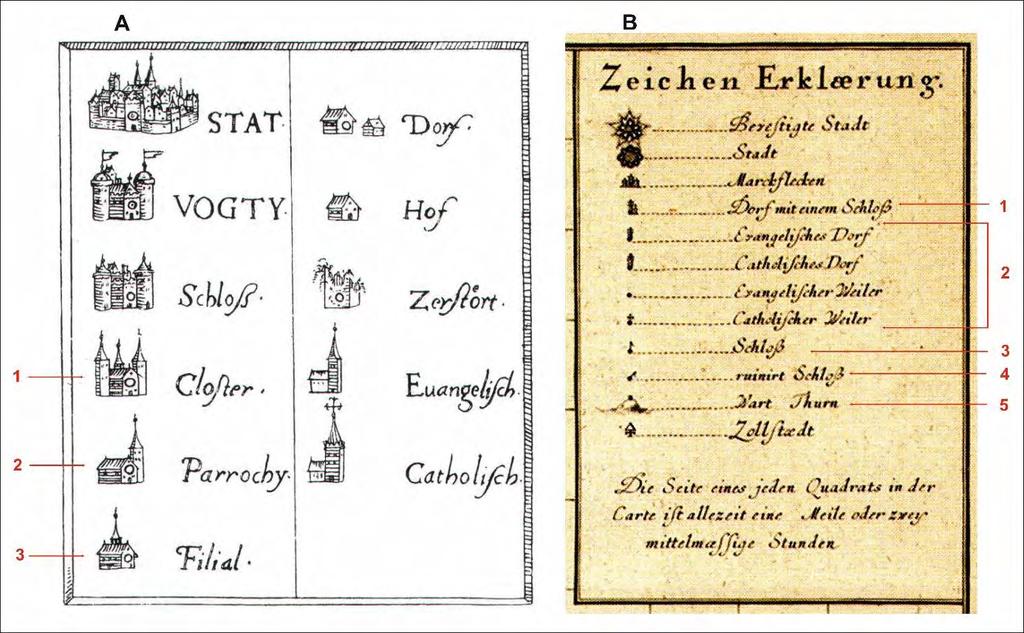 A
STAT.
VOGTY.
Schloß.
1
Closter.
2
Parrochy.
3
Filial.
Dorf.
Hof
Zerstört.
Euangelisch.
Catholisch.
B
Zeichen Erklærung.
Berestigte Stadt
Stadt
Marckflecken
Dorf mit einem Schloß
1
Evangelisches Dorf
Catholisches Dorf
2
Evangelischer Weiler
Catholischer Weiler
Schloß
3
ruinirt Schloß
4
Wart Thurn
5
Zollstædt
Die Seite eines jeden Quadrats in der
Carte ist allezeit eine Meile oder zwey
mittelmæssige Stunden